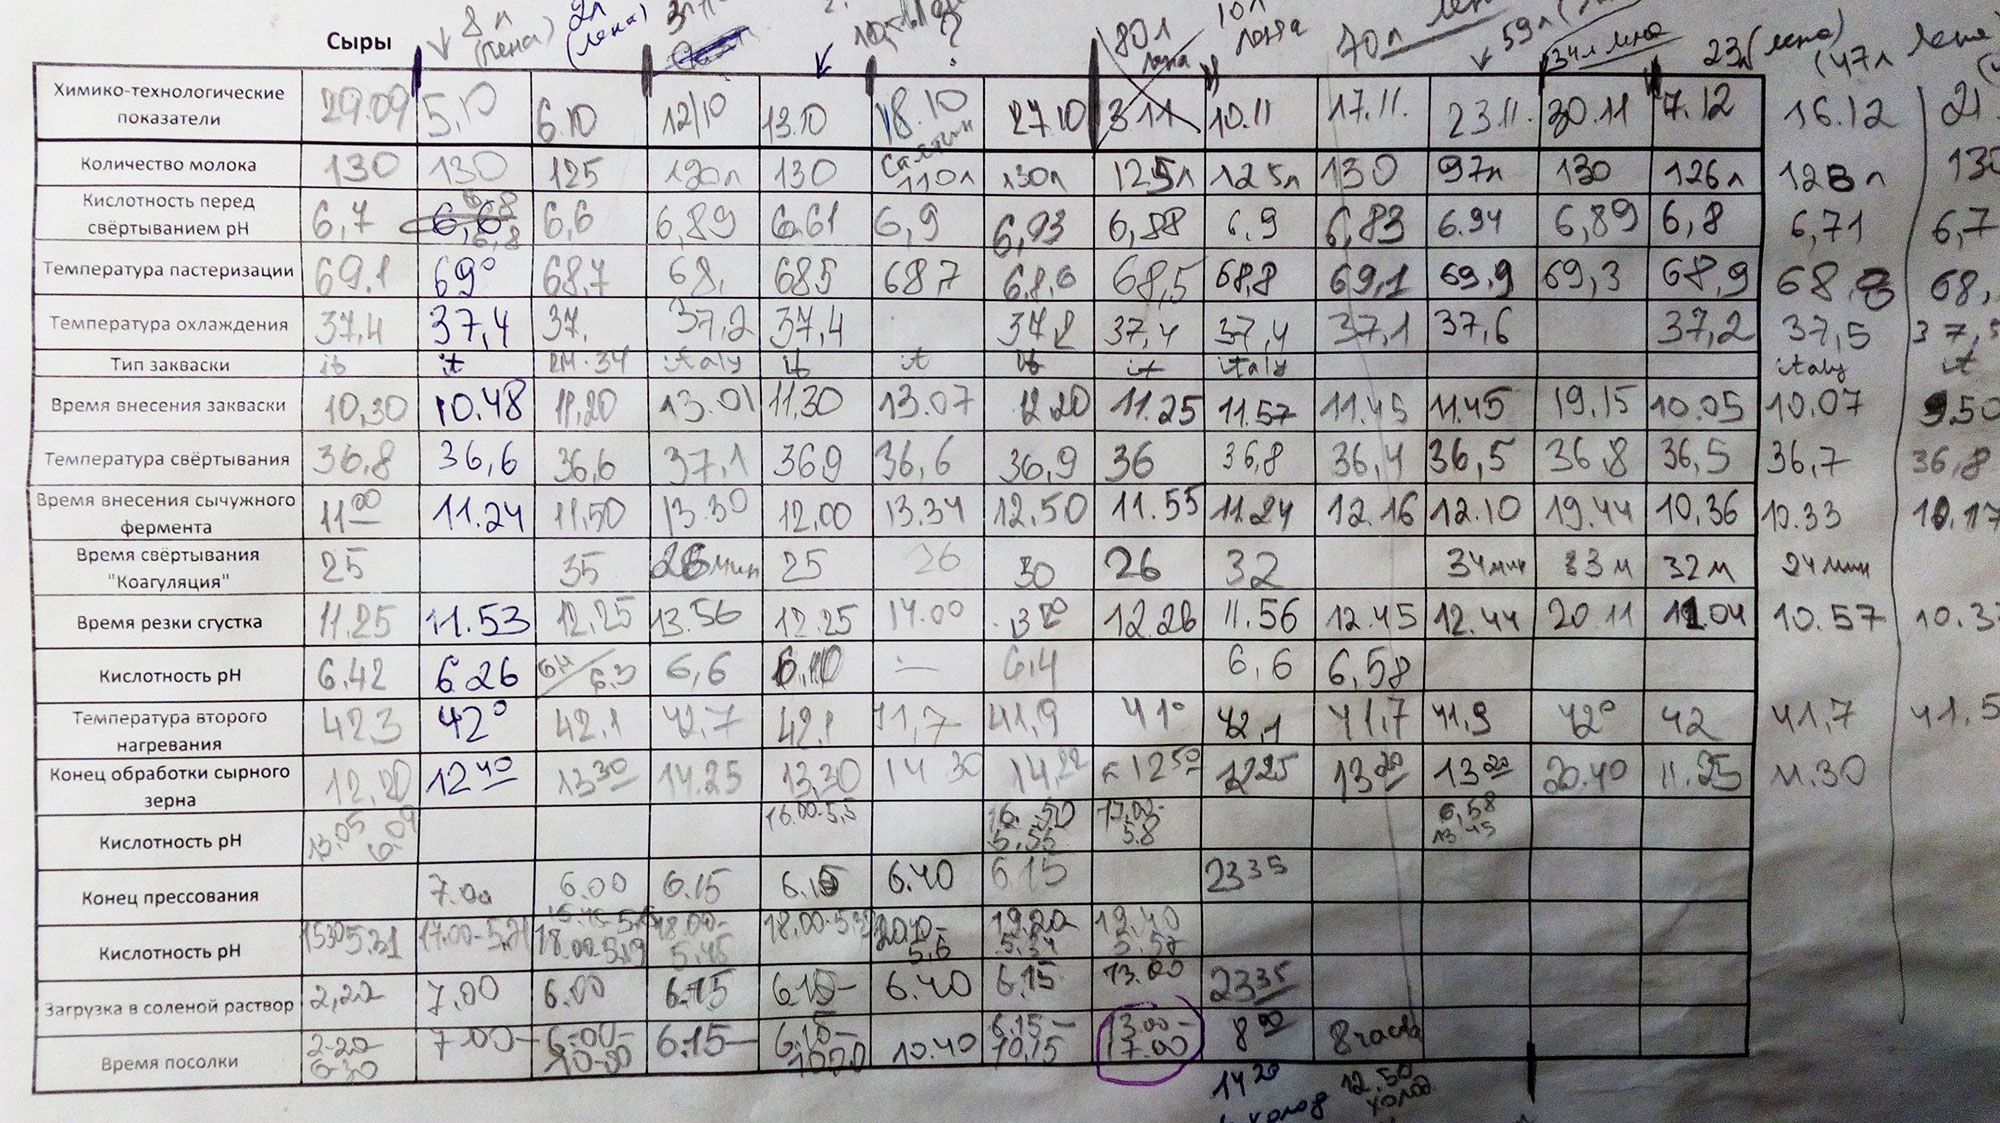 8л
(лена)
2л
(лена)
?
80л
лата
10л
70л
59л
34л лена
23л (лена)
(47л лена
Сыры
Химико-технологические показатели 29.09 5.10 6.10 12/10 13.10 18.10 27.10 3.11 10.11 17.11. 23.11. 30.11 7.12 16.12 21
Количество молока 130 130 125 130л 130 110л 130л 125л 125л 130 97л 130 126л 128л 130
Кислотность перед свёртыванием pH 6,7 6,8 6,6 6,89 6.61 6,9 6,93 6,88 6,9 6,83 6.94 6,89 6,8 6,71 6,7
Температура пастеризации 69.1 69° 68,7 68, 68.5 68,7 68,6 68,5 68,8 69,1 69,9 69,3 68,9 68,8 68,
Температура охлаждения 37,4 37,4 37, 37,2 37,4 37,2 37,4 37,4 37,1 37,6 37,2 37,5 37,5
Тип закваски it it italy it it it it italy italy it
Время внесения закваски 10,30 10.48 11,20 13.01 11.30 13.07 12.20 11.25 11.57 11.45 11.45 19.15 10.05 10.07 9.50
Температура свёртывания 36,8 36,6 36,6 37,1 36.9 36,6 36,9 36 36,8 36,4 36,5 36,8 36,5 36,7 36,8
Время внесения сычужного фермента 11 00 11.24 11,50 13.30 12.00 13.34 12.50 11.55 11.24 12.16 12.10 19.44 10,36 10.33 10.17
Время свёртывания "Коагуляция" 25 35 26мин 25 26 30 26 32 34мин 33м 32м 24мин
Время резки сгустка 11.25 11.53 12.25 13.56 12.25 14.00 12.26 11.56 12.45 12.44 20.11 11.04 10.57 10.3
Кислотность pH 6.42 6.26 6.3 6,6 — 6,4 6,6 6,58
Температура второго нагревания 42.3 42° 42.1 42,7 42.1 41,7 41,9 41° 42,1 41,7 41,9 42° 42 41,7 41.5
Конец обработки сырного зерна 12.20 12 40 13 30 14.25 13,30 14.30 14.22 12 50 12 25 13 20 13 20 20.40 11.25 11.30
Кислотность pH 13.05 6.09 16.00-5,5 16.50 5,55 17.00- 5.8 6,58 13 45
Конец прессования 7.00 6.00 6.15 6.15 6.40 6.15 23 35
Кислотность pH 15 30 5.31 17.00-5.21 18.00-5.19 18.00- 5.45 18.00-5.3 20.10- 5,6 19.20- 5.34 19.40 5.57
Загрузка в соленой раствор 2,20 7,00 6.00 6.15 6.15- 6.40 6.15 13.00 23 35
Время посолки 2-20 6-30 7.00- 6.00- 10-00 6.15- 6.15- 10.20 10.40 6.15- 10.15 13.00- 17.00 8 00 8 часов
14 20 12.50
холод холод